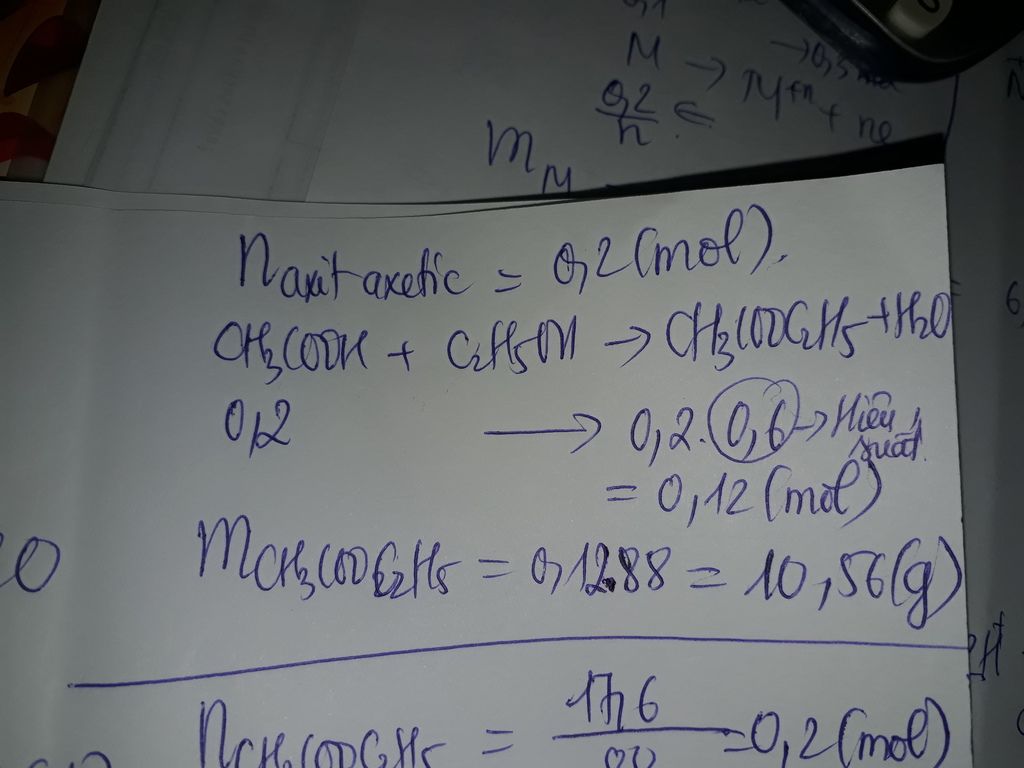 M → M+n + ne
0,2/n ←
mM
n axit axetic = 0,2 (mol).
CH3COOH + C2H5OH → CH3COOC2H5 + H2O
0,2 → 0,2.0,6 → Hiệu suất.
= 0,12 (mol)
mCH3COOC2H5 = 0,12.88 = 10,56 (g)
nCH3COOC2H5 = 17,6/88 = 0,2 (mol)